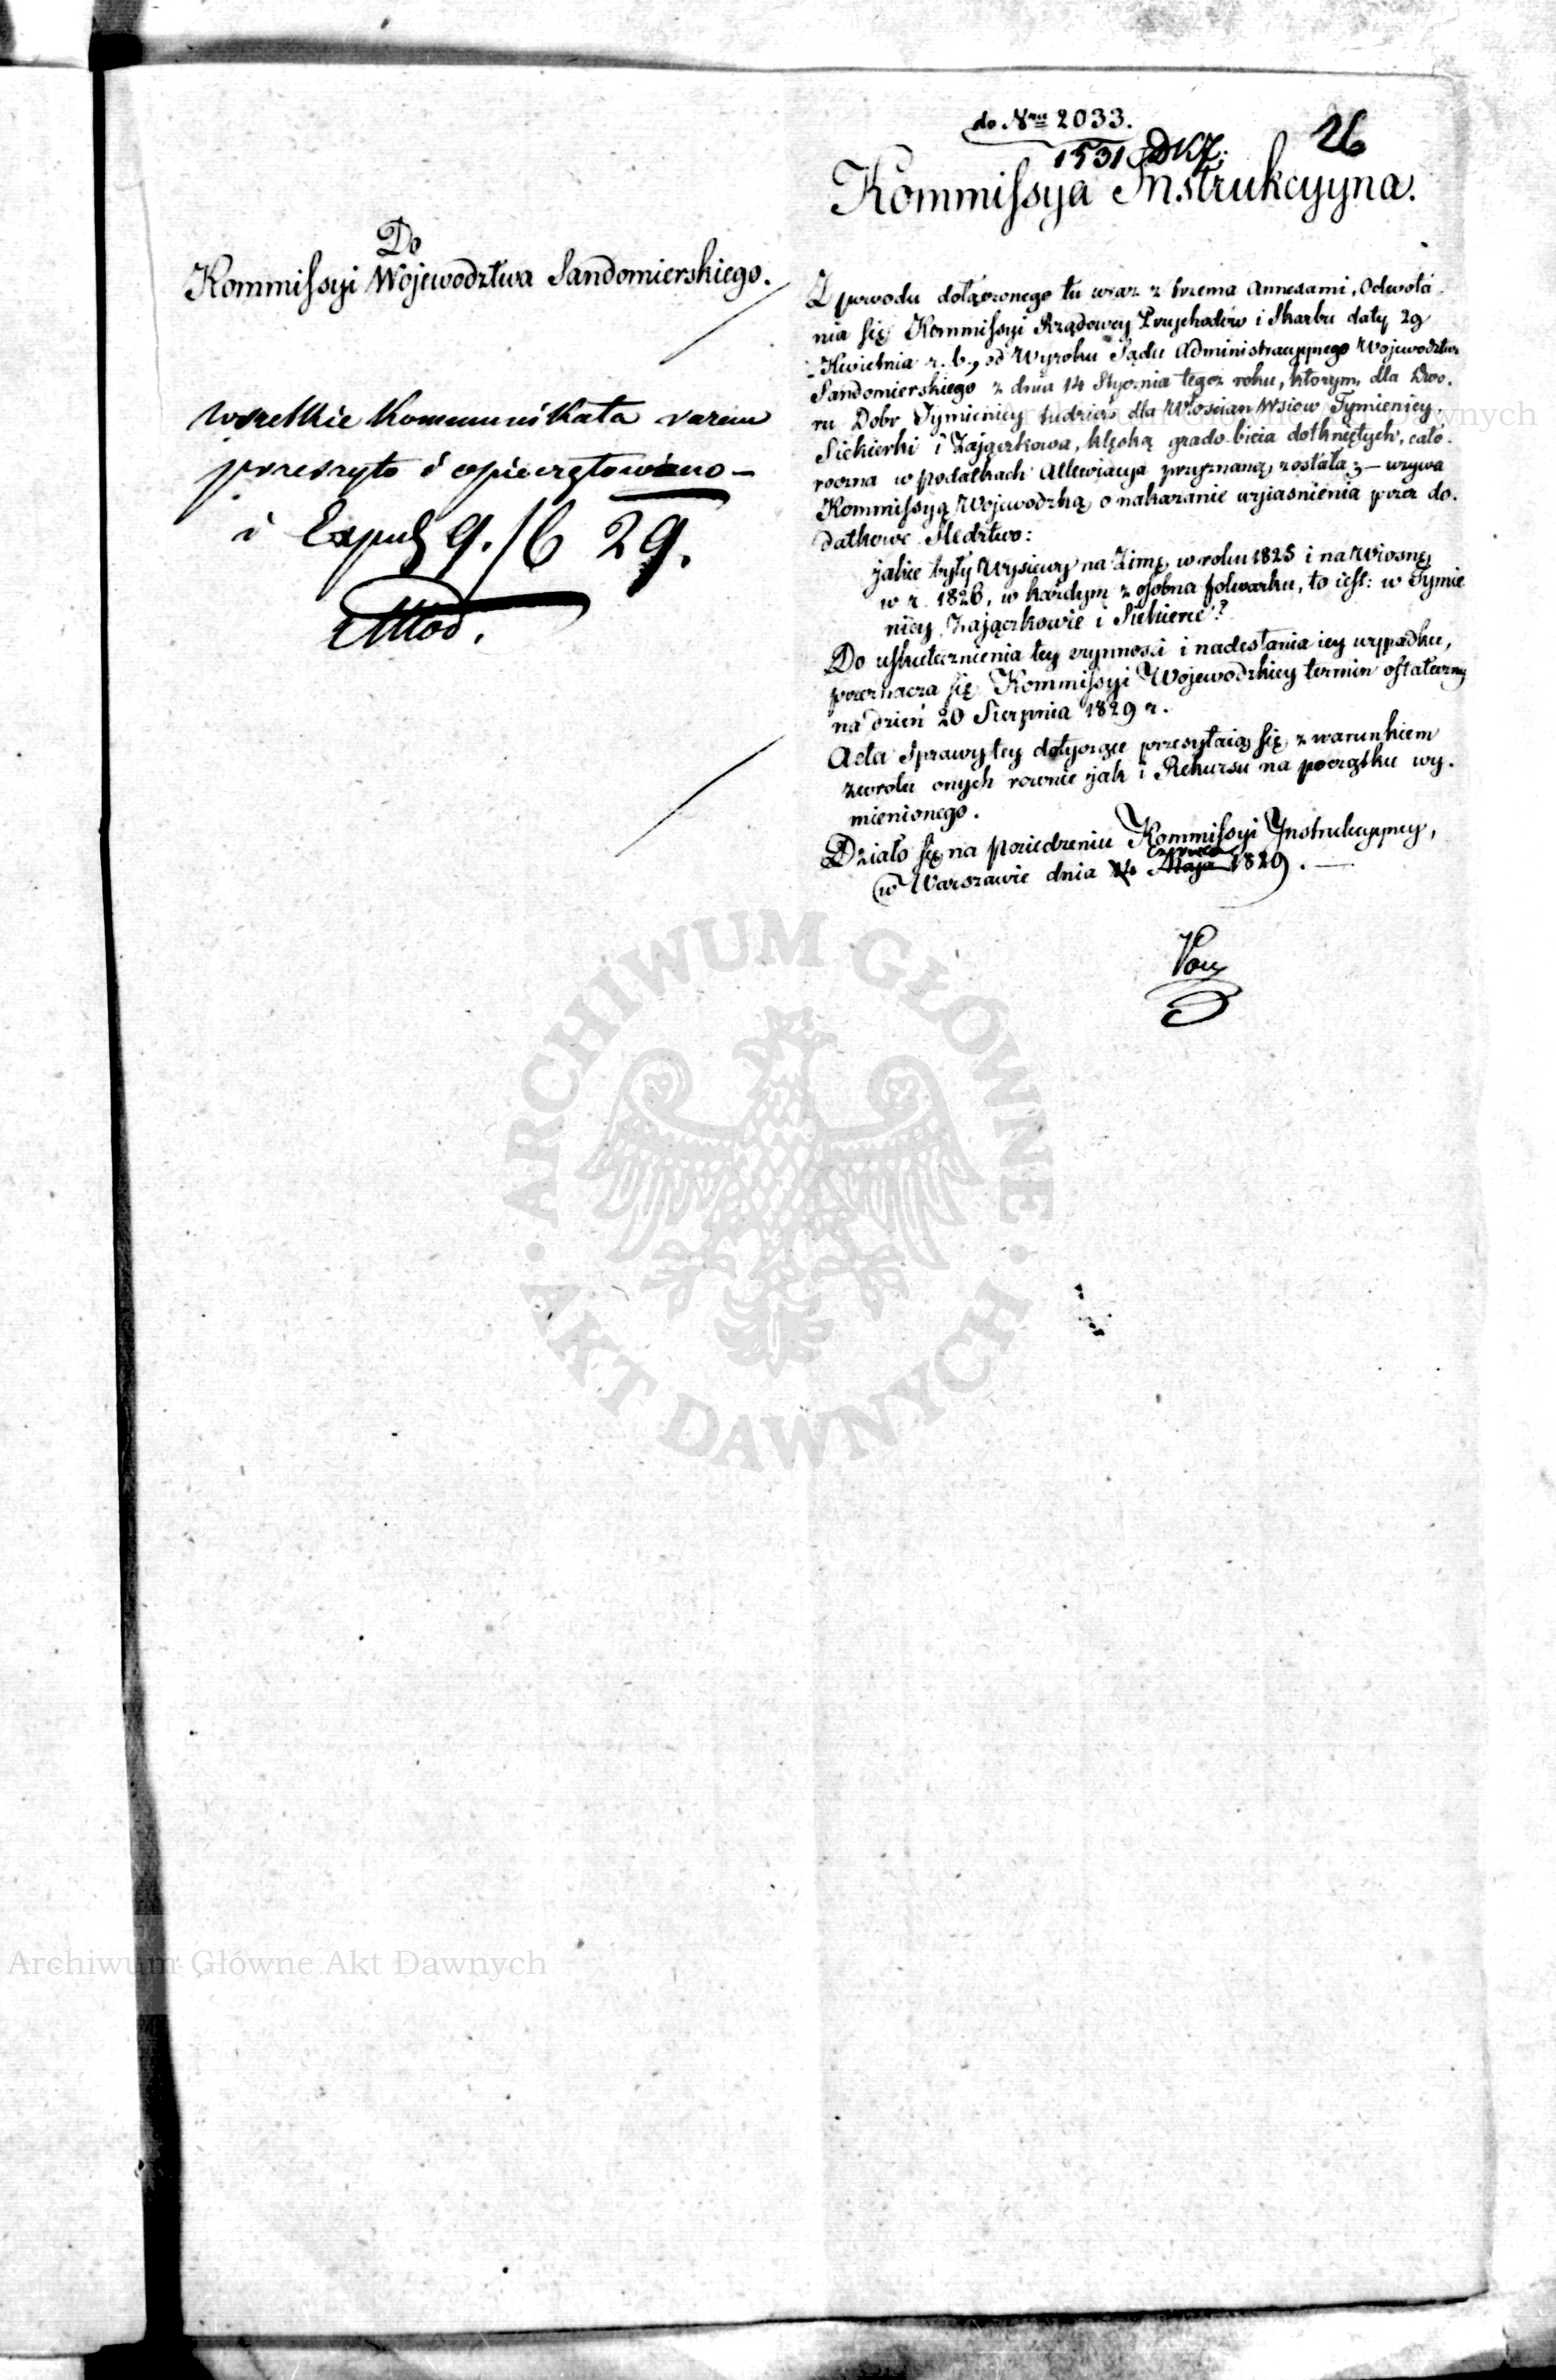 do Nru 2033.
1531 DKJ.
26
Kommissya Instrukcyyna.
Do
Kommissyi Województwa Sandomierskiego.
wszelkie kommunikata razem
przeszyto i opieczętowano —
i Exped 9./6 29.
Z powodu dołączonego tu wraz z trzema Annexami, Odwoła-
nia się Kommissyi Rządowey Przychodów i Skarbu daty 29
Kwietnia r. b., od Wyroku Sądu Administracyynego Województwa
Sandomierskiego z dnia 14 Stycznia tegoż roku, którym, dla Dwo-
ru Dobr Tymienicy tudzież dla Włościan Wsiow Tymienicy,
Siekierki i Zajączkowa, klęską grado-bicia dotkniętych, cało-
roczna w podatkach Allewiacya przyznaną została; — wzywa
Kommissyą Wojewodzką, o nakazanie wyiaśnienia przez do-
datkowe Śledztwo:
jakie były Wysiewy na Zimę, w roku 1825 i na Wiosnę,
w r. 1826, w każdym z osobna folwarku, to iest: w Tymie
nicy, Zajączkowie i Siekierce?
Do uskutecznienia tey czynności i nadesłania iey wypadku,
przeznacza się Kommissyi Wojewodzkiey termin ostateczny
na dzień 20 Sierpnia 1829 r.
Acta Sprawy tey dotyczące przesyłaią się, z warunkiem
zwrotu onych rownie jak i Rekursu na początku wy-
mienionego.
Działo się na posiedzeniu Kommissyi Instrukcyyney,
w Warszawie dnia Czerwca Maja 1829. —
Archiwum Główne Akt Dawnych
ARCHIWUM GŁÓWNE
AKT DAWNYCH
Archiwum Główne Akt Dawnych